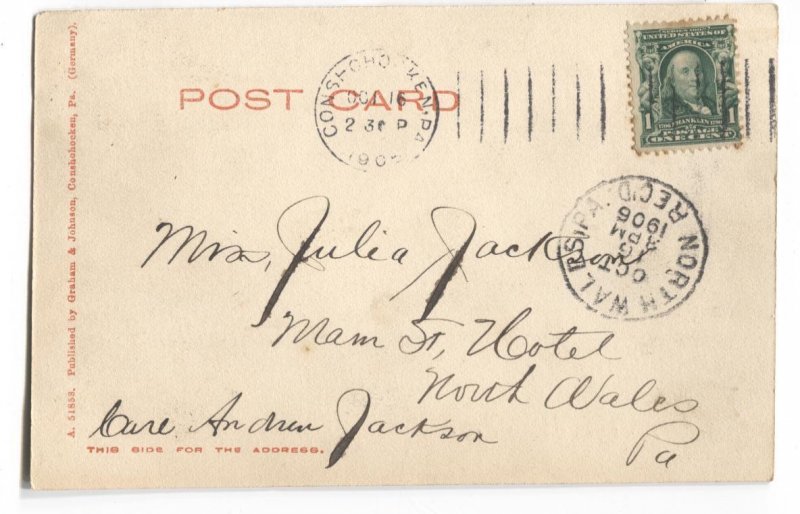 A. 51853. Published by Graham & Johnson, Conshohocken, Pa. (Germany).
POST CARD
CONSHOHOCKEN, PA
OCT 16
2 30 P
190
SERIES 1902
UNITED STATES OF
AMERICA
1 1
1706 FRANKLIN 1790
POSTAGE
ONE CENT
NORTH WALES, PA. REC'D
OCT
PM
1906
Miss, Julia Jackson
Main St, Hotel
North Wales
Pa
Care Andrew Jackson
THIS SIDE FOR THE ADDRESS.